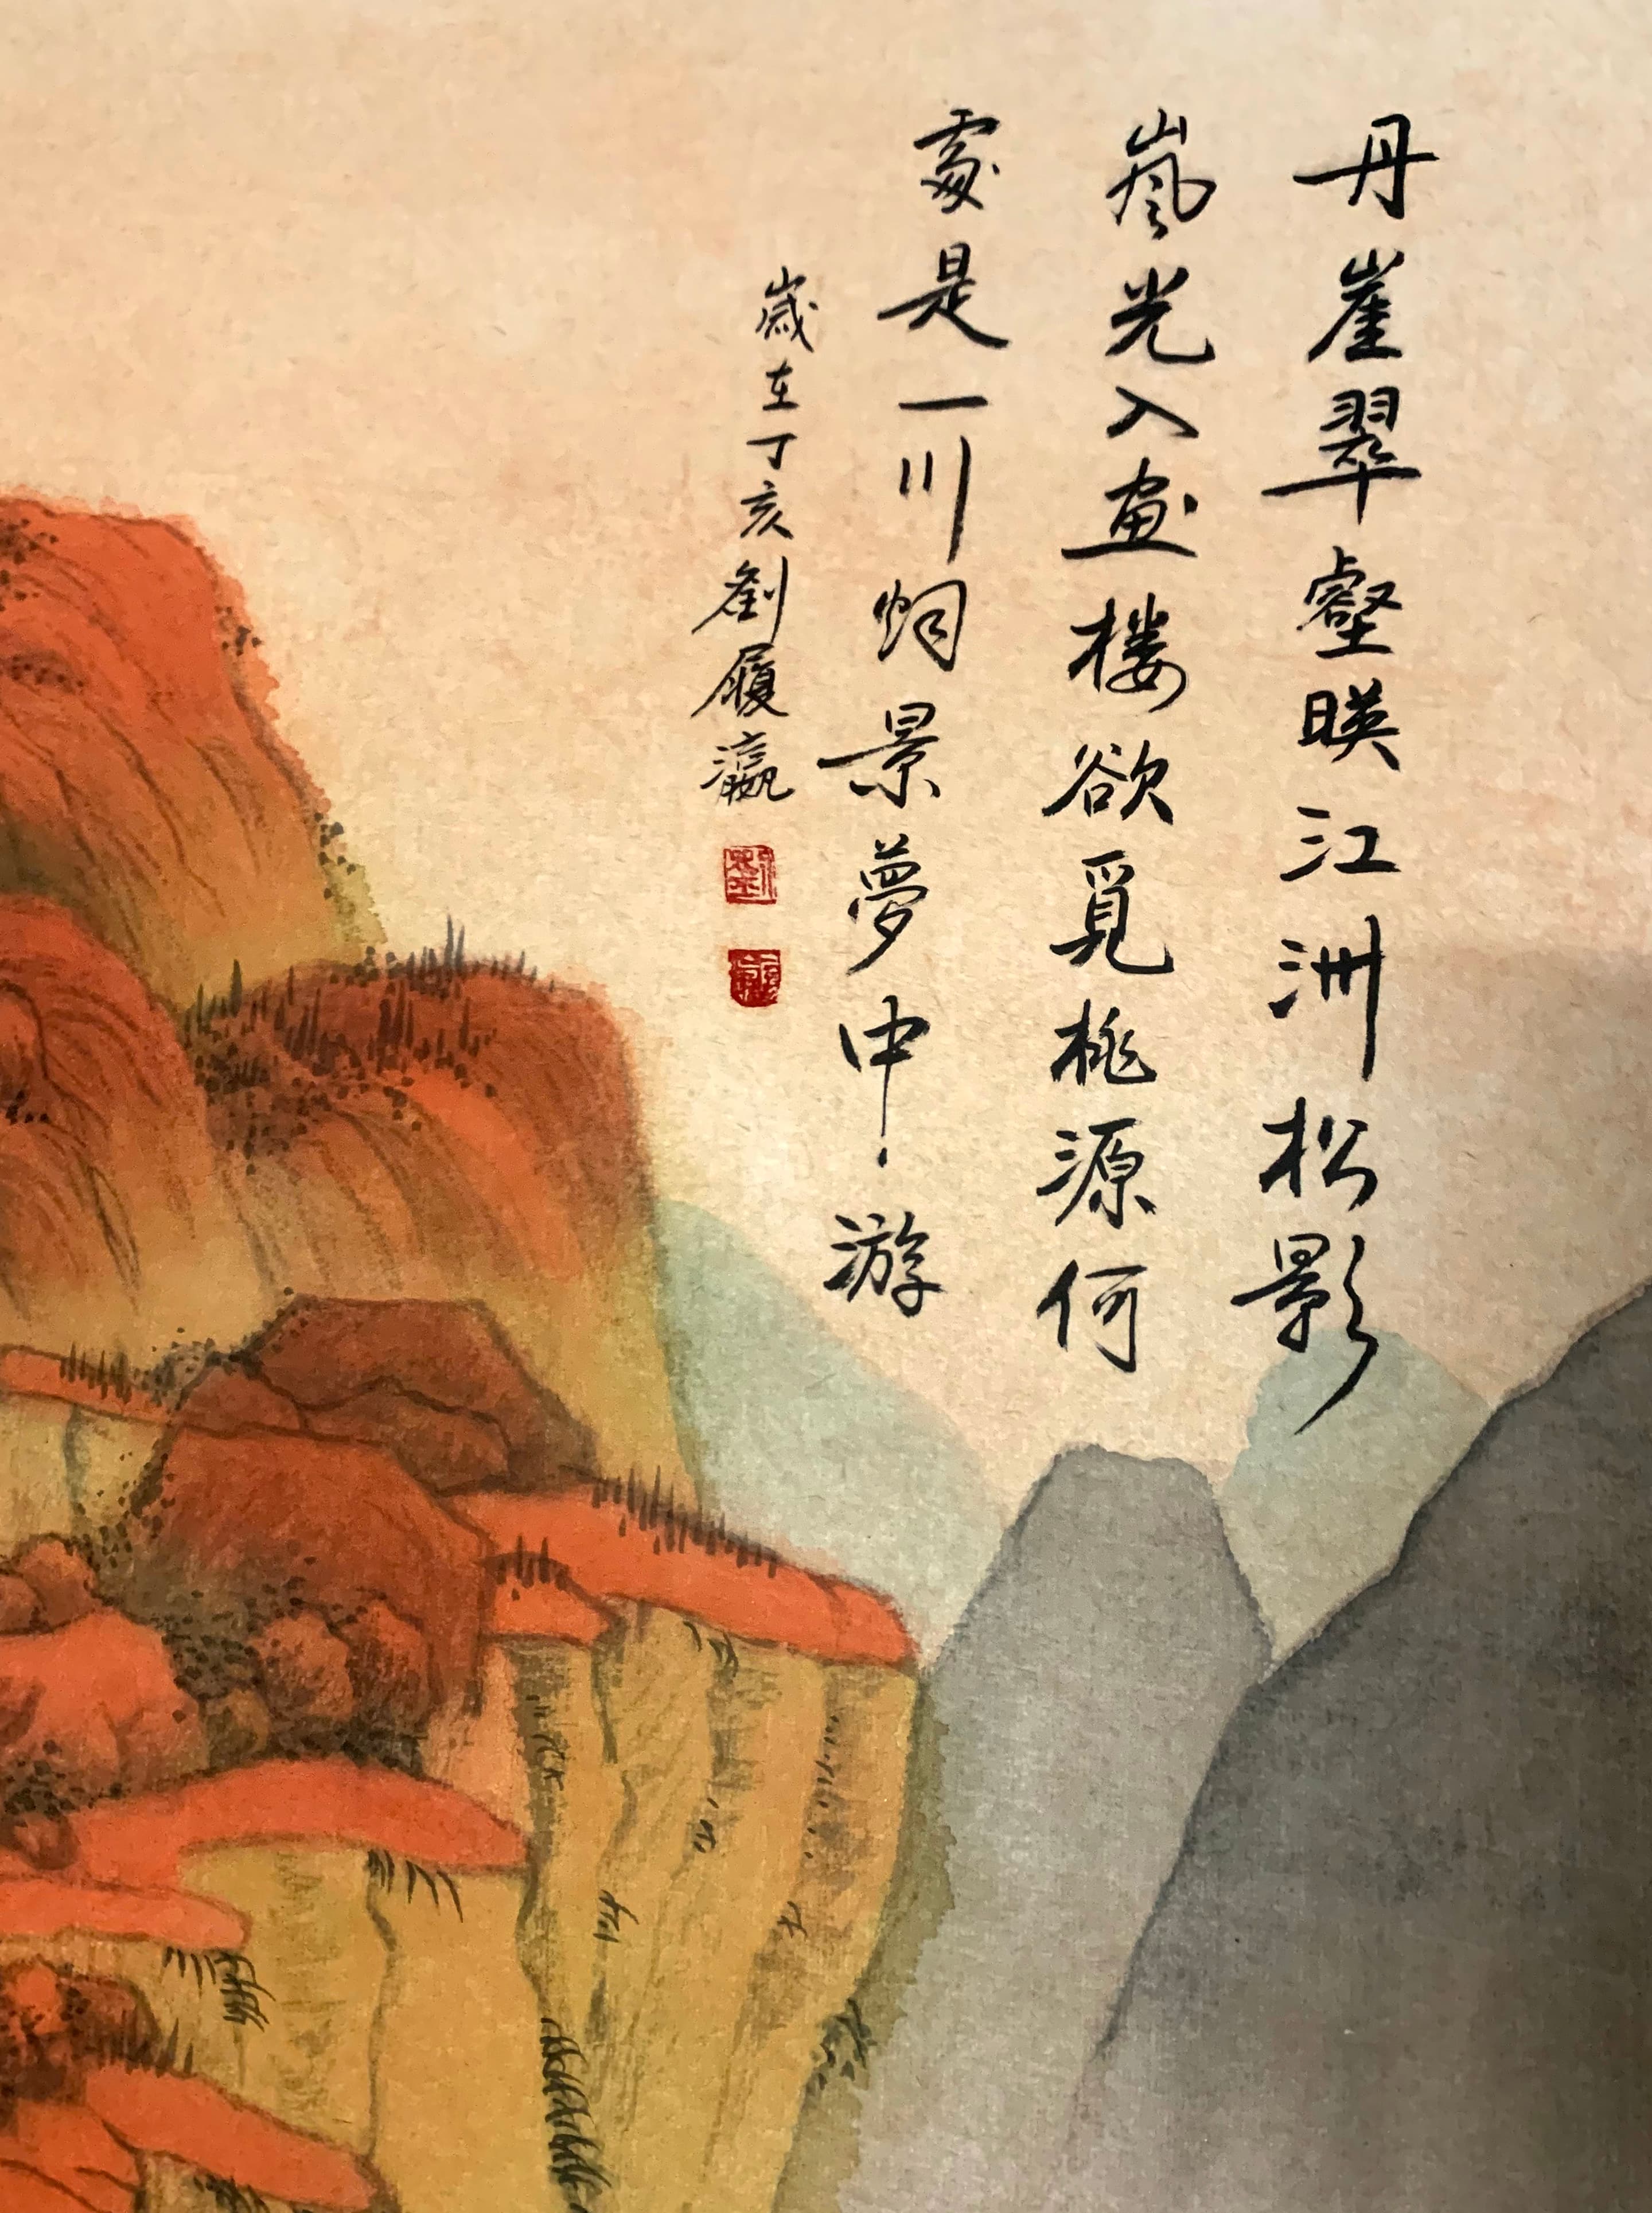 丹崖翠壑暎江洲松影
嵐光入畫楼欲覓桃源何
處是一川烟景夢中游
歲在丁亥劉履瀛